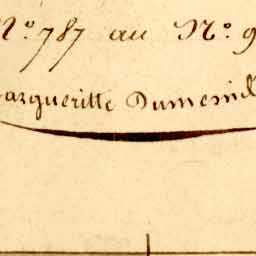 N.º 787 au N.º 9
arguerittte Dumesnil